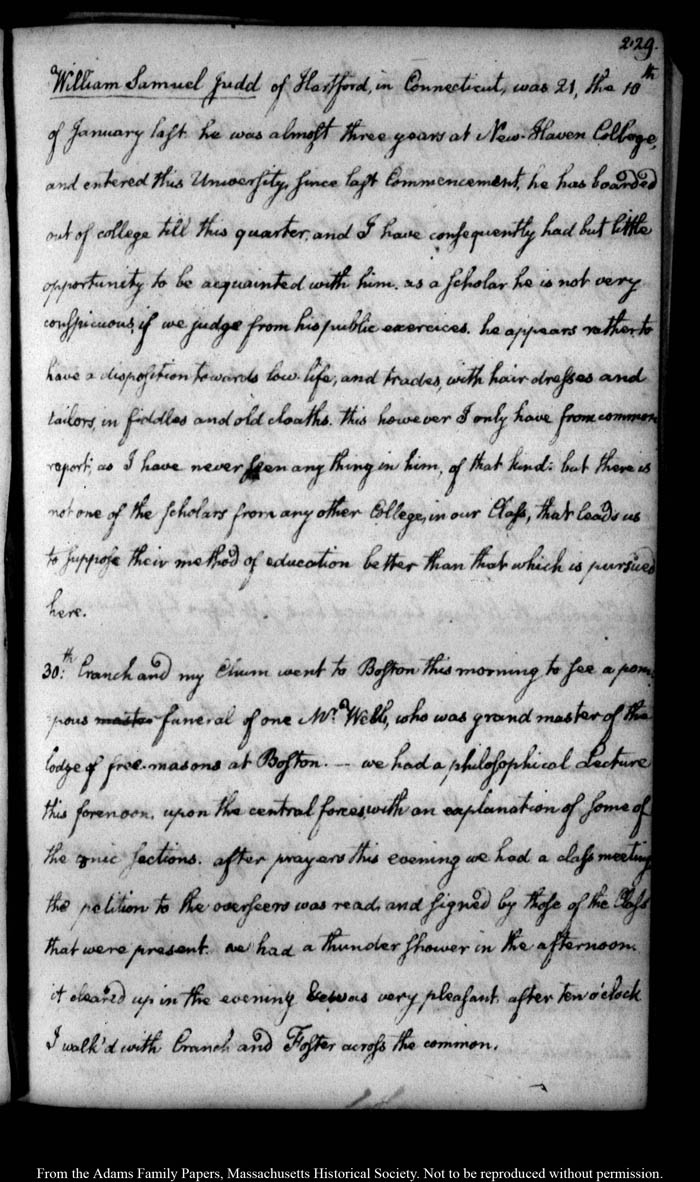 229.
William Samuel Judd of Hartford, in Connecticut, was 21, the 10th
of January last. he was almost three years at New-Haven College,
and entered this University, since last Commencement, he has boarded
out of college till this quarter, and I have consequently had but little
opportunity to be acquainted with him. as a scholar he is not very
conspicuous, if we judge from his public exercices. he appears rather to
have a disposition towards low-life, and trades, with hair dresses and
tailors, in fiddles and old cloaths. this however I only have from common
report; as I have never seen any thing in him, of that kind: but there is
not one of the scholars from any other College, in our Class, that leads us
to suppose their method of education better than that which is pursued
here.
30th. Cranch and my Chum went to Boston this morning to see a pom-
pous master funeral of one Mr. Webb, who was grand master of the
lodge of free-masons at Boston. — we had a philosophical Lecture
this forenoon. upon the central forces, with an explanation of some of
the conic sections. after prayers this evening we had a class meeting
the petition to the overseers was read, and signed by those of the Class
that were present. we had a thunder shower in the afternoon.
it cleared up in the evening & was very pleasant. after ten o'clock
I walk'd with Cranch and Foster across the common.
From the Adams Family Papers, Massachusetts Historical Society. Not to be reproduced without permission.